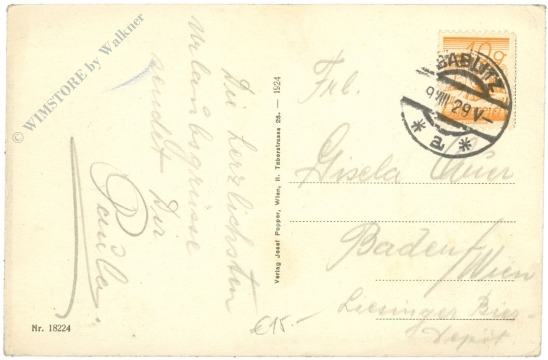 © WIMSTORE by Walkner
Die herzlichsten
Urlaubsgrüsse
sendet Dir
Nr. 18224
€15.-
Verlag Josef Popper, Wien, II. Taborstrasse 28. — 1924
10g
GABLITZ
9.VIII.29 V-
* a *
Frl.
Gisela Auer
Baden/Wien
Liesinger Bier-
Depôt